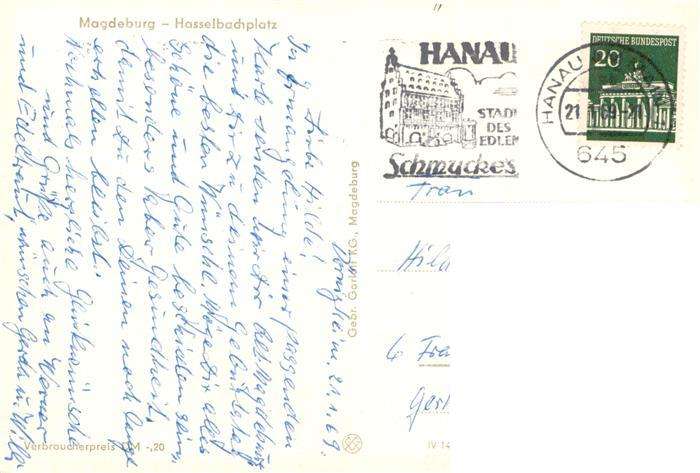 Magdeburg – Hasselbachplatz
21.1.69.
Liebe Hilde!
In Ermangelung einer passenden
Karte senden wir dir aus Magdeburg
und dir zu deinem Geburtstag
die besten Wünsche. Möge dir alles
Schöne und Gute beschieden sein,
besonders aber Gesundheit,
damit du den Deinen noch lange
erhalten bleibst.
Nochmals herzliche Glückwünsche
und Grüße auch an Werner
und Edeltraut, wünschen
Verbraucherpreis DM -,20
Gebr. Garloff KG., Magdeburg
IV-14
HANAU
STADT
DES
EDLEN
Schmuckes
DEUTSCHE BUNDESPOST
20
HANAU
21
645
Frau
Hild
6 Fra